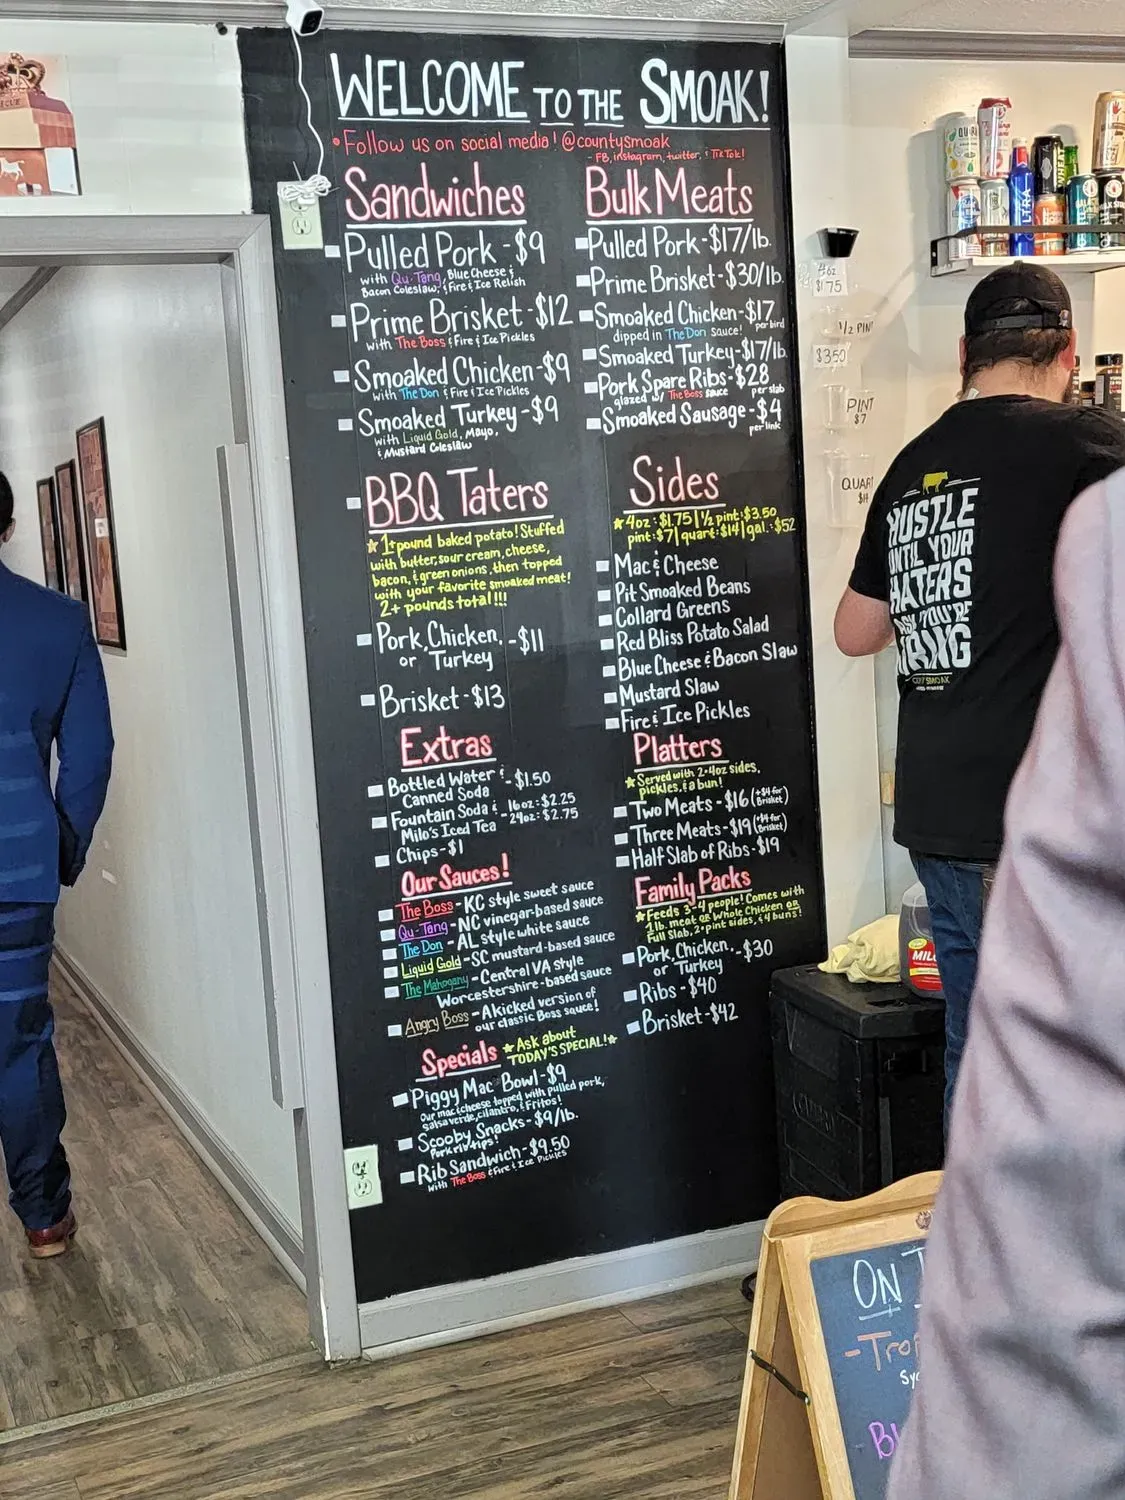 WELCOME TO THE SMOAK!
• Follow us on social media! @countysmoak
- FB, instagram, twitter, & TikTok!
Sandwiches
Pulled Pork - $9
with Qu-Tang, Blue Cheese &
Bacon Coleslaw, & Fire & Ice Relish
Prime Brisket - $12
with The Boss & Fire & Ice Pickles
Smoaked Chicken - $9
with The Don & Fire & Ice Pickles
Smoaked Turkey - $9
with Liquid Gold, Mayo,
& Mustard Coleslaw
BBQ Taters
★ 1+ pound baked potato! Stuffed
with butter, sour cream, cheese,
bacon, & green onions, then topped
with your favorite smoaked meat!
2+ pounds total!!!
Pork, Chicken, - $11
or Turkey
Brisket - $13
Extras
Bottled Water & - $1.50
Canned Soda
Fountain Soda & - 16oz: $2.25
Milo's Iced Tea - 24oz: $2.75
Chips - $1
Our Sauces!
The Boss - KC style sweet sauce
Qu-Tang - NC vinegar-based sauce
The Don - AL style white sauce
Liquid Gold - SC mustard-based sauce
The Mahogany - Central VA style
Worcestershire-based sauce
Angry Boss - A kicked version of
our classic Boss sauce!
Specials ★ Ask about
TODAY'S SPECIAL! ★
Piggy Mac Bowl - $9
Our mac & cheese topped with pulled pork,
salsa verde, cilantro, & Fritos!
Scooby Snacks - $9/lb.
Pork rib tips!
Rib Sandwich - $9.50
with The Boss & Fire & Ice Pickles
Bulk Meats
Pulled Pork - $17/lb.
Prime Brisket - $30/lb.
Smoaked Chicken - $17
dipped in The Don Sauce! per bird
Smoaked Turkey - $17/lb.
Pork Spare Ribs - $28
glazed w/ The Boss sauce per slab
Smoaked Sausage - $4
per link
Sides
★ 4oz: $1.75 | ½ pint: $3.50
pint: $7 | quart: $14 | gal.: $52
Mac & Cheese
Pit Smoaked Beans
Collard Greens
Red Bliss Potato Salad
Blue Cheese & Bacon Slaw
Mustard Slaw
Fire & Ice Pickles
Platters
★ Served with 2-4oz sides,
pickles, & a bun!
Two Meats - $16 (+$4 for Brisket)
Three Meats - $19 (+$4 for Brisket)
Half Slab of Ribs - $19
Family Packs
★ Feeds 3-4 people! Comes with
1 lb. meat or Whole Chicken or
Full Slab, 2-pint sides, & 4 buns!
Pork, Chicken, - $30
or Turkey
Ribs - $40
Brisket - $42
4oz
$1.75
1/2 PINT
$3.50
PINT
$7
QUAR
ULTRA
HUSTLE
UNTIL YOUR
HATERS
ASK YOU'RE
HIRING
ON